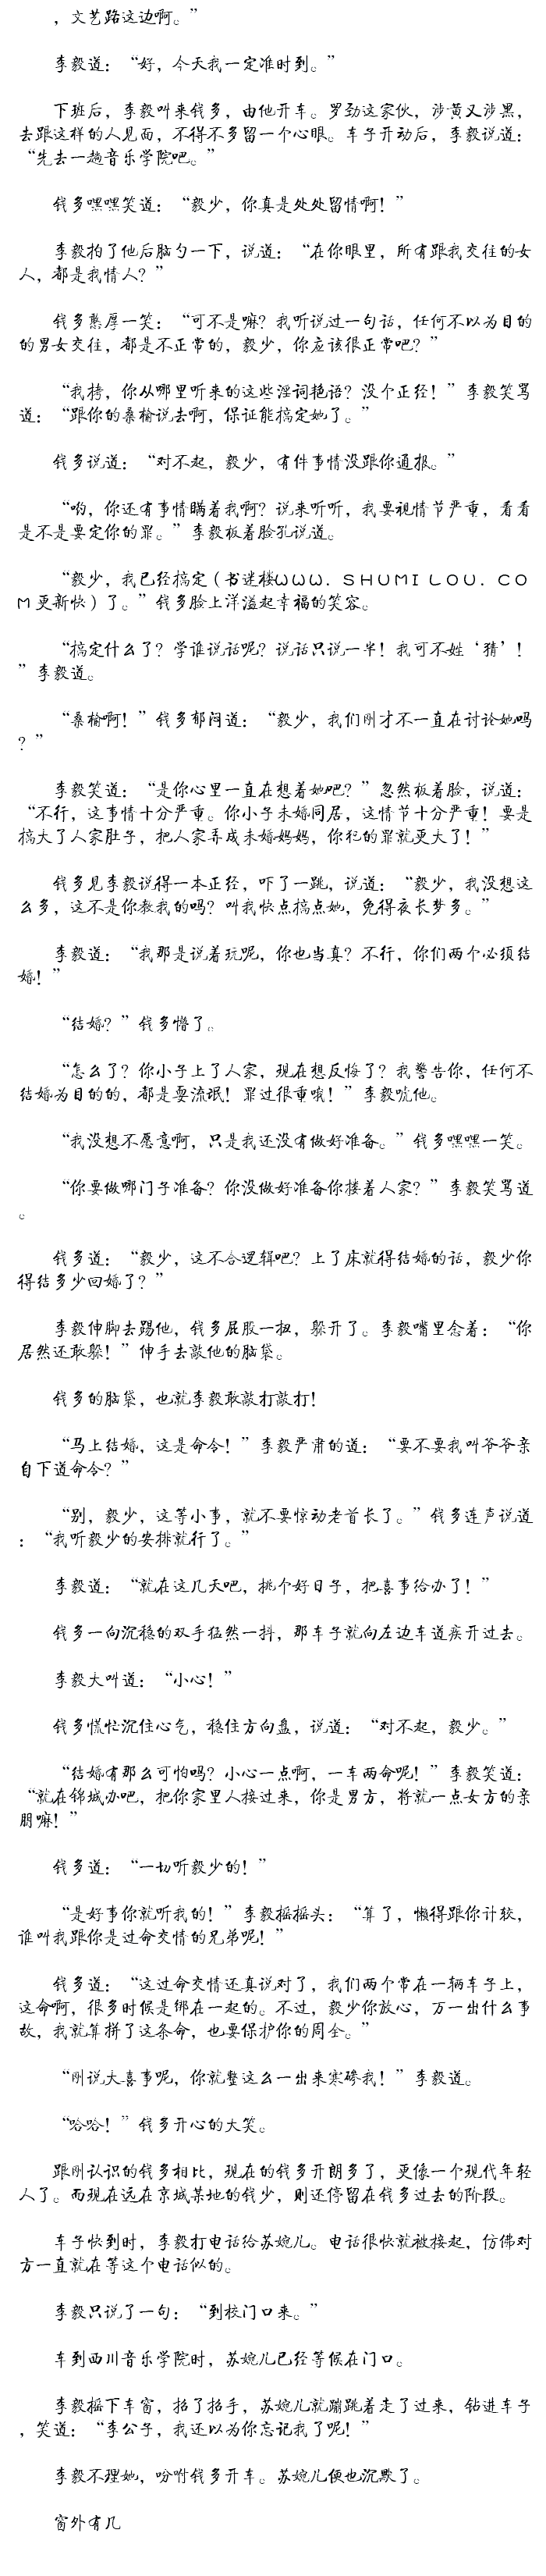 ，文艺路这边啊。”
李毅道：“好，今天我一定准时到。”
下班后，李毅叫来钱多，由他开车。罗劲这家伙，涉黄又涉黑，
去跟这样的人见面，不得不多留一个心眼。车子开动后，李毅说道：
“先去一趟音乐学院吧。”
钱多嘿嘿笑道：“毅少，你真是处处留情啊！”
李毅拍了他后脑勺一下，说道：“在你眼里，所有跟我交往的女
人，都是我情人？”
钱多憨厚一笑：“可不是嘛？我听说过一句话，任何不以为目的
的男女交往，都是不正常的，毅少，你应该很正常吧？”
“我榜，你从哪里听来的这些淫词艳语？没个正经！”李毅笑骂
道：“跟你的桑榆说去啊，保证能搞定她了。”
钱多说道：“对不起，毅少，有件事情没跟你通报。”
“哟，你还有事情瞒着我啊？说来听听，我要视情节严重，看看
是不是要定你的罪。”李毅板着脸孔说道。
“毅少，我已经搞定（书迷楼WWW．SHUMILOU．CO
M更新快）了。”钱多脸上洋溢起幸福的笑容。
“搞定什么了？学谁说话呢？说话只说一半！我可不姓‘猜’！
”李毅道。
“桑榆啊！”钱多郁闷道：“毅少，我们刚才不一直在讨论她吗
？”
李毅笑道：“是你心里一直在想着她吧？”忽然板着脸，说道：
“不行，这事情十分严重。你小子未婚同居，这情节十分严重！要是
搞大了人家肚子，把人家弄成未婚妈妈，你犯的罪就更大了！”
钱多见李毅说得一本正经，吓了一跳，说道：“毅少，我没想这
么多，这不是你教我的吗？叫我快点搞点她，免得夜长梦多。”
李毅道：“我那是说着玩呢，你也当真？不行，你们两个必须结
婚！”
“结婚？”钱多懵了。
“怎么了？你小子上了人家，现在想反悔了？我警告你，任何不
结婚为目的的，都是耍流氓！罪过很重哦！”李毅唬他。
“我没想不愿意啊，只是我还没有做好准备。”钱多嘿嘿一笑。
“你要做哪门子准备？你没做好准备你搂着人家？”李毅笑骂道
。
钱多道：“毅少，这不合逻辑吧？上了床就得结婚的话，毅少你
得结多少回婚了？”
李毅伸脚去踢他，钱多屁股一扭，躲开了。李毅嘴里念着：“你
居然还敢躲！”伸手去敲他的脑袋。
钱多的脑袋，也就李毅敢敲打敲打！
“马上结婚，这是命令！”李毅严肃的道：“要不要我叫爷爷亲
自下道命令？”
“别，毅少，这等小事，就不要惊动老首长了。”钱多连声说道
：“我听毅少的安排就行了。”
李毅道：“就在这几天吧，挑个好日子，把喜事给办了！”
钱多一向沉稳的双手猛然一抖，那车子就向左边车道疾开过去。
李毅大叫道：“小心！”
钱多慌忙沉住心气，稳住方向盘，说道：“对不起，毅少。”
“结婚有那么可怕吗？小心一点啊，一车两命呢！”李毅笑道：
“就在锦城办吧，把你家里人接过来，你是男方，将就一点女方的亲
朋嘛！”
钱多道：“一切听毅少的！”
“是好事你就听我的！”李毅摇摇头：“算了，懒得跟你计较，
谁叫我跟你是过命交情的兄弟呢！”
钱多道：“这过命交情还真说对了，我们两个常在一辆车子上，
这命啊，很多时候是绑在一起的。不过，毅少你放心，万一出什么事
故，我就算拼了这条命，也要保护你的周全。”
“刚说大喜事呢，你就整这么一出来寒碜我！”李毅道。
“哈哈！”钱多开心的大笑。
跟刚认识的钱多相比，现在的钱多开朗多了，更像一个现代年轻
人了。而现在远在京城某地的钱少，则还停留在钱多过去的阶段。
车子快到时，李毅打电话给苏婉儿。电话很快就被接起，仿佛对
方一直就在等这个电话似的。
李毅只说了一句：“到校门口来。”
车到西川音乐学院时，苏婉儿已经等候在门口。
李毅摇下车窗，招了招手，苏婉儿就蹦跳着走了过来，钻进车子
，笑道：“李公子，我还以为你忘记我了呢！”
李毅不理她，吩咐钱多开车。苏婉儿便也沉默了。
窗外有几